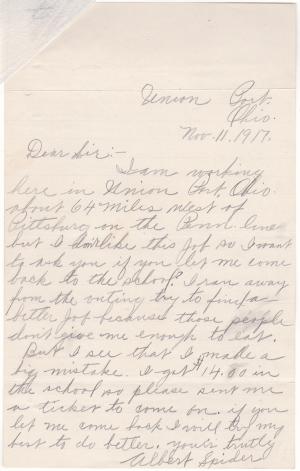 Union Port.
Ohio.
Nov. 11, 1917.
Dear Sir:-
I am working
here in Union Port Ohio.
about 64 miles west of
Pittsburg on the Penn line
but I don't like this job so I want
to ask you if you let me come
back to the school? I ran away
from the outing try to find a
better job because those people
don't give me enough to eat.
But I see that I made a
big mistake. I got $14.00 in
the school so please sent me
a ticket to come on. if you
let me come back I will try my
best to do better. your's truly
Albert Spider